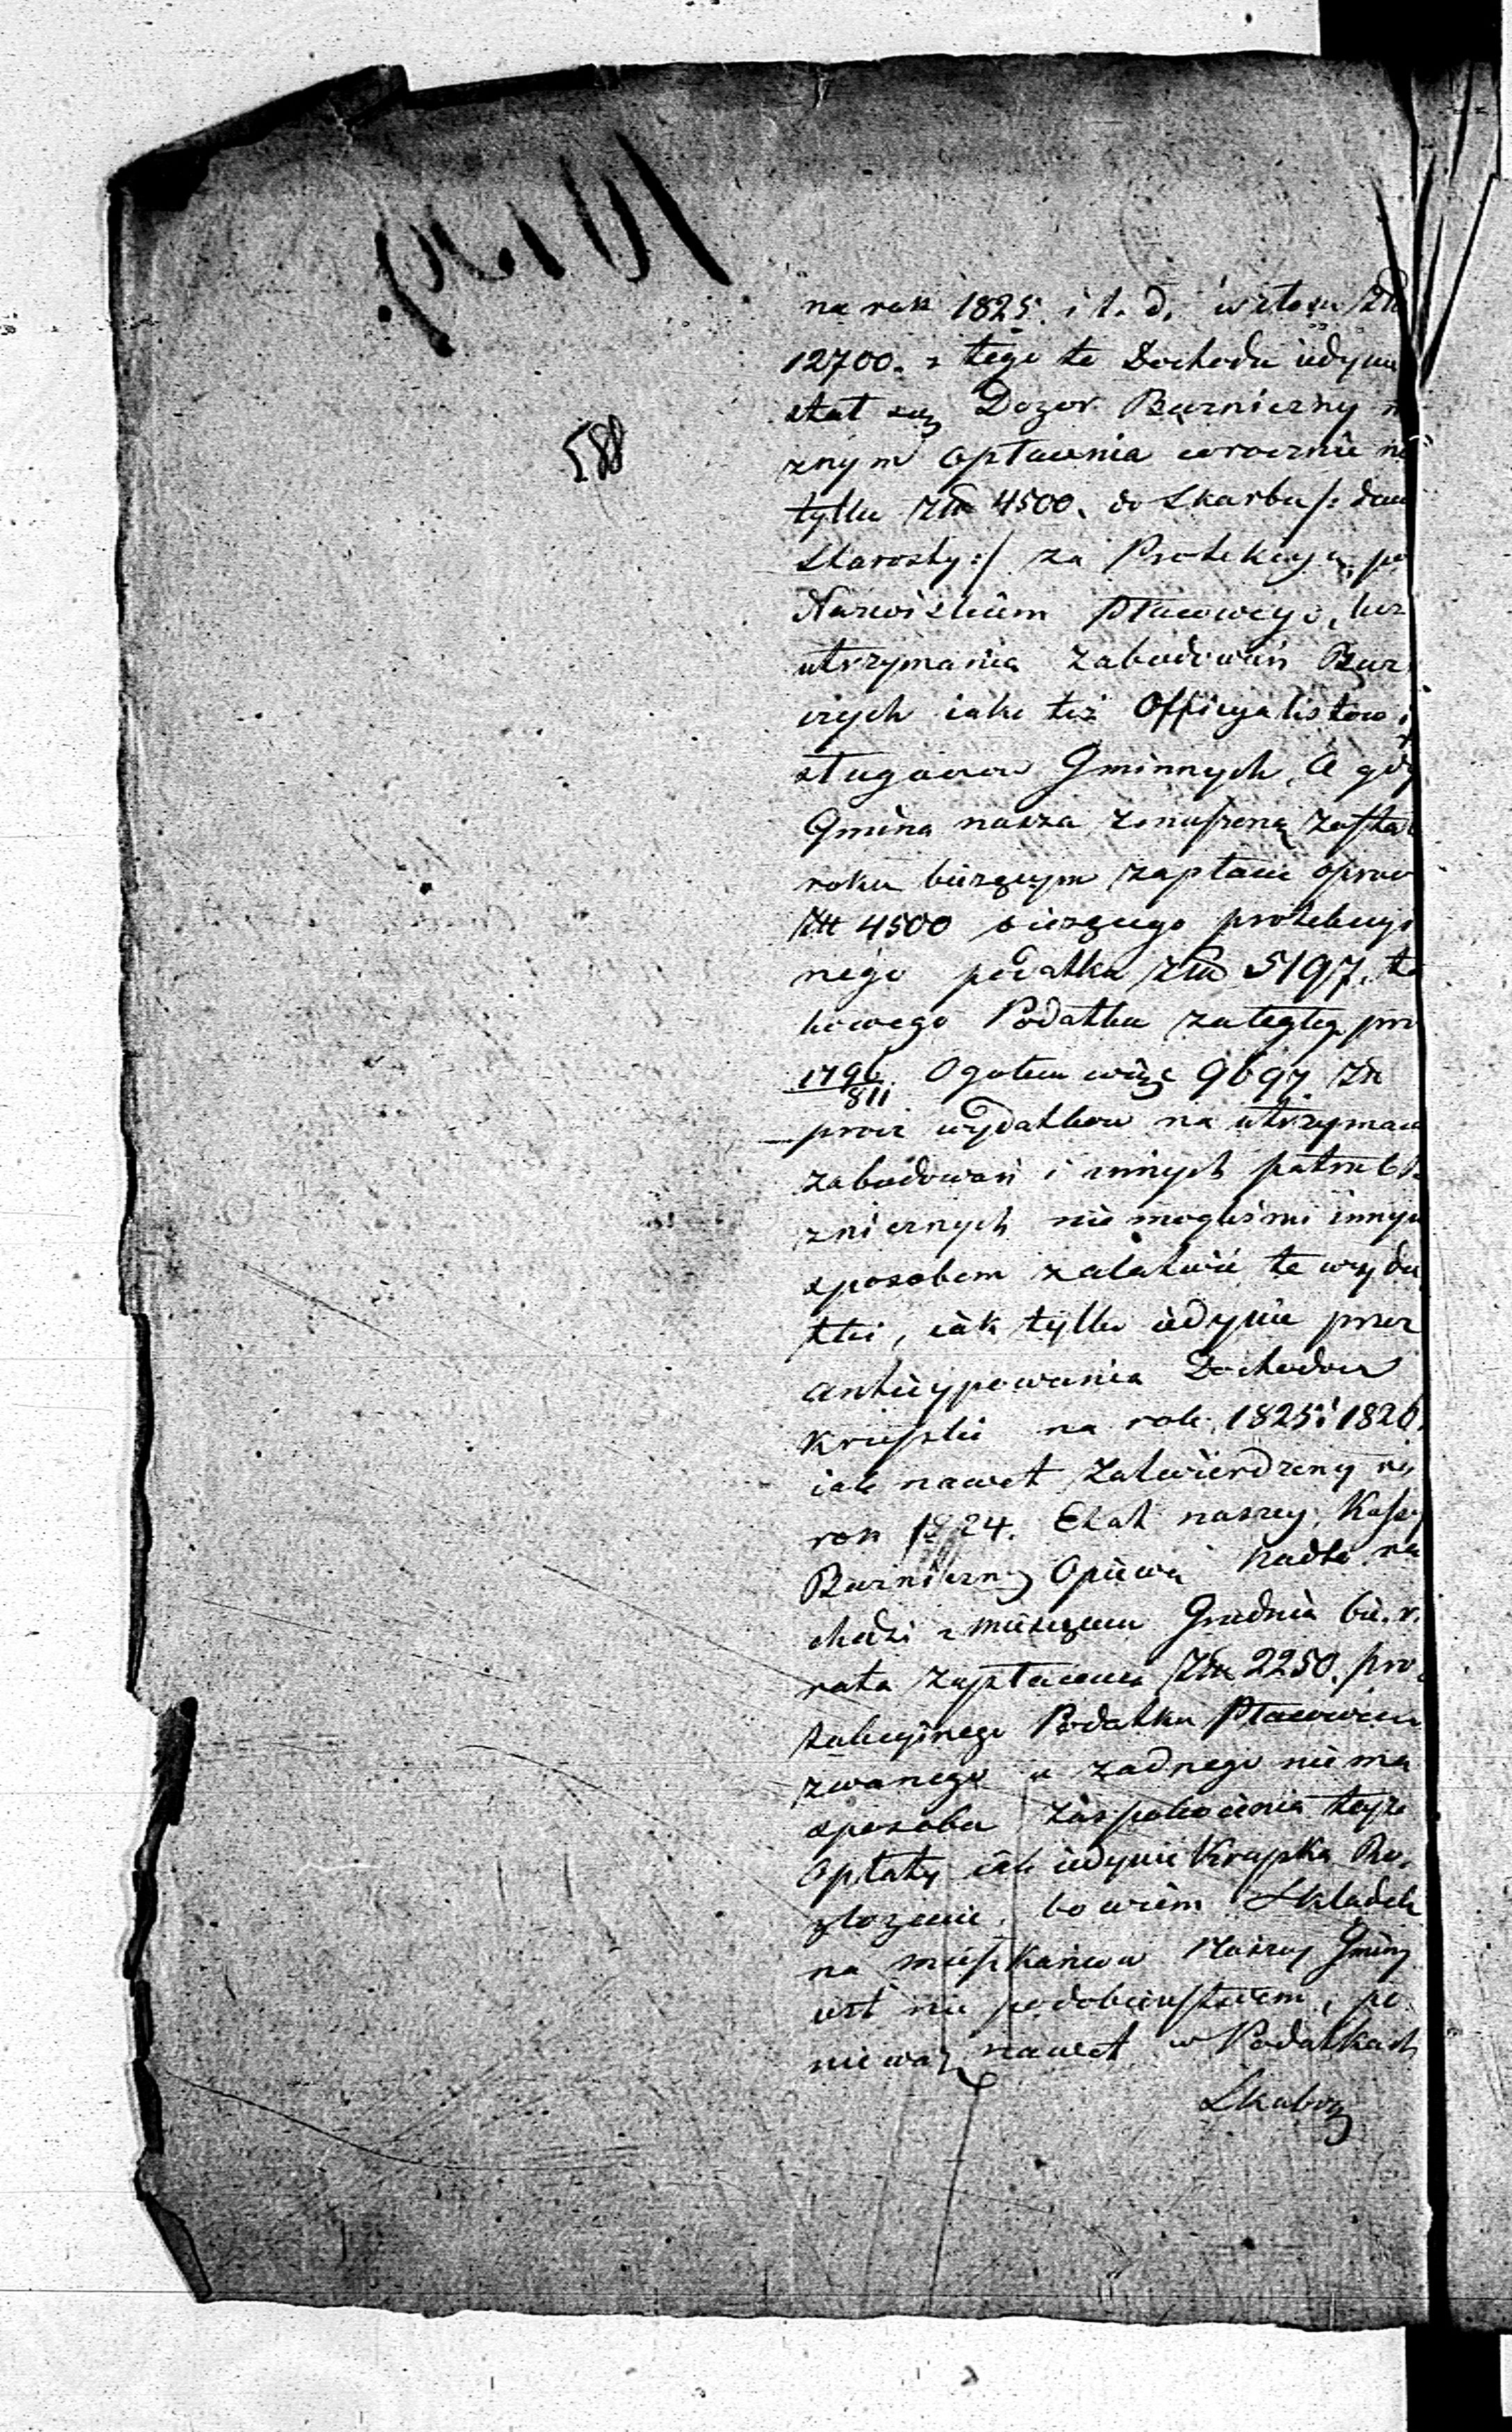 588
na rok 1825. i t. d. w złożu Złł
12700. z tego to Dochodu iedyn
stał się Dozor Bóżniczny
znym opłacania corocznie
tylku Złł 4500. do Skarbu /: daw
Starosty :/ za Protekcyą, po
Nazwiskiem Płacowego,
utrzymania zabudowań Bóż
czych iako też Officyalistow i
sługaczow Gminnych, A gdy
Gmina nasza zmuszoną zosta
roku bieżącym zapłacić oproc
Złł 4500 bieżącego protekcyi
nego podatku Złł 5197. ta
kowego Podatku zaległego pro
1796/811. Ogołem więc 9697 Złł
procz wydatkow na utrzyman
zabudowań i innych potrzeb
znicznych nie mogliśmi innym
sposobem załatwić te wyda
tki, iak tylko iedynie przez
anticypowania Dochodow
Krupki na rok 1825 i 1826.
iak nawet zatwierdzony
rok 1824. Etat naszey Kassy
Bużniczney Opiewa nadto na
chodzi z miesiącem Grudnia bie. r.
rata zapłacenia Złł 2250. pro
tekcyinego Podatku Płacowem
zwanego a żadnego nie ma
sposobu zaspokoienia teyże
Opłaty iak iedynie Krupka
złożenie, bowiem Składek
na mieszkańcow naszey Gminy
iest nie podobieństwem, po
nieważ nawet w Podatkach
Skabow